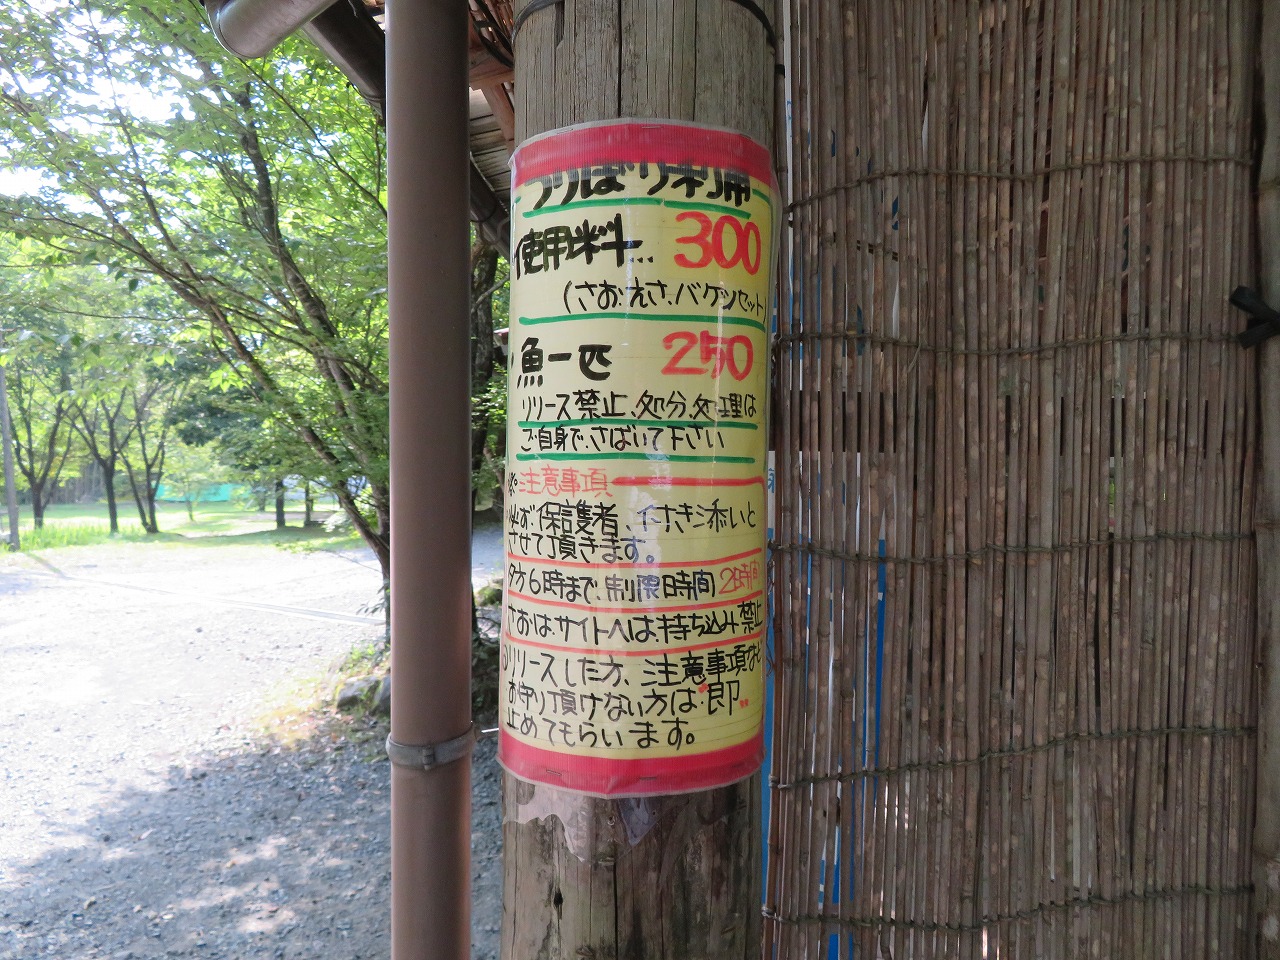 つりぼり利用
使用料... 300
(さお.えさ.バケツセット)
魚一匹 250
リリース禁止、処分、処理は
ご自身で、さばいて下さい
※注意事項
必ず、保護者、付き添いと
させて頂きます。
夕方6時まで、制限時間 2時間
さおは、サイトへは、持ち込み禁止
リリースした方、注意事項など
お守り頂けない方は"即"
止めてもらいます。